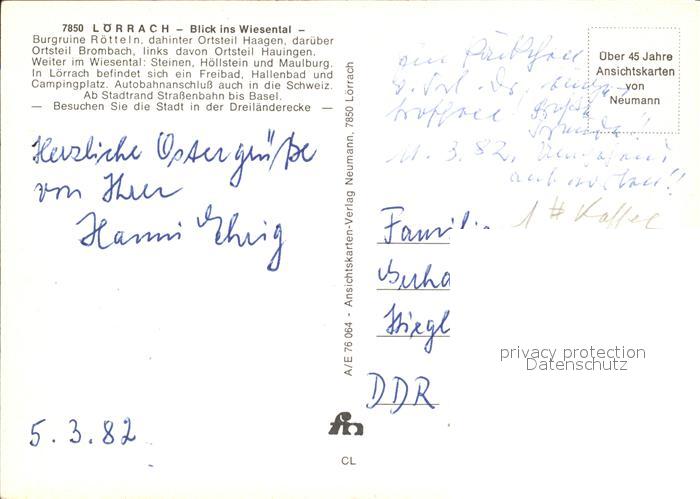 7850 LÖRRACH – Blick ins Wiesental –
Burgruine Rötteln, dahinter Ortsteil Haagen, darüber
Ortsteil Brombach, links davon Ortsteil Hauingen.
Weiter im Wiesental: Steinen, Höllstein und Maulburg.
In Lörrach befindet sich ein Freibad, Hallenbad und
Campingplatz. Autobahnanschluß auch in die Schweiz.
Ab Stadtrand Straßenbahn bis Basel.
— Besuchen Sie die Stadt in der Dreiländerecke —
Herzliche Ostergrüße
von Ihrer
Hanni Ehrig
5.3.82
A/E 76 064 - Ansichtskarten-Verlag Neumann, 7850 Lörrach
fn
CL
Über 45 Jahre
Ansichtskarten
von
Neumann
ein
11.3.82,
1 # Kaffee
Famili
DDR
privacy protection
Datenschutz